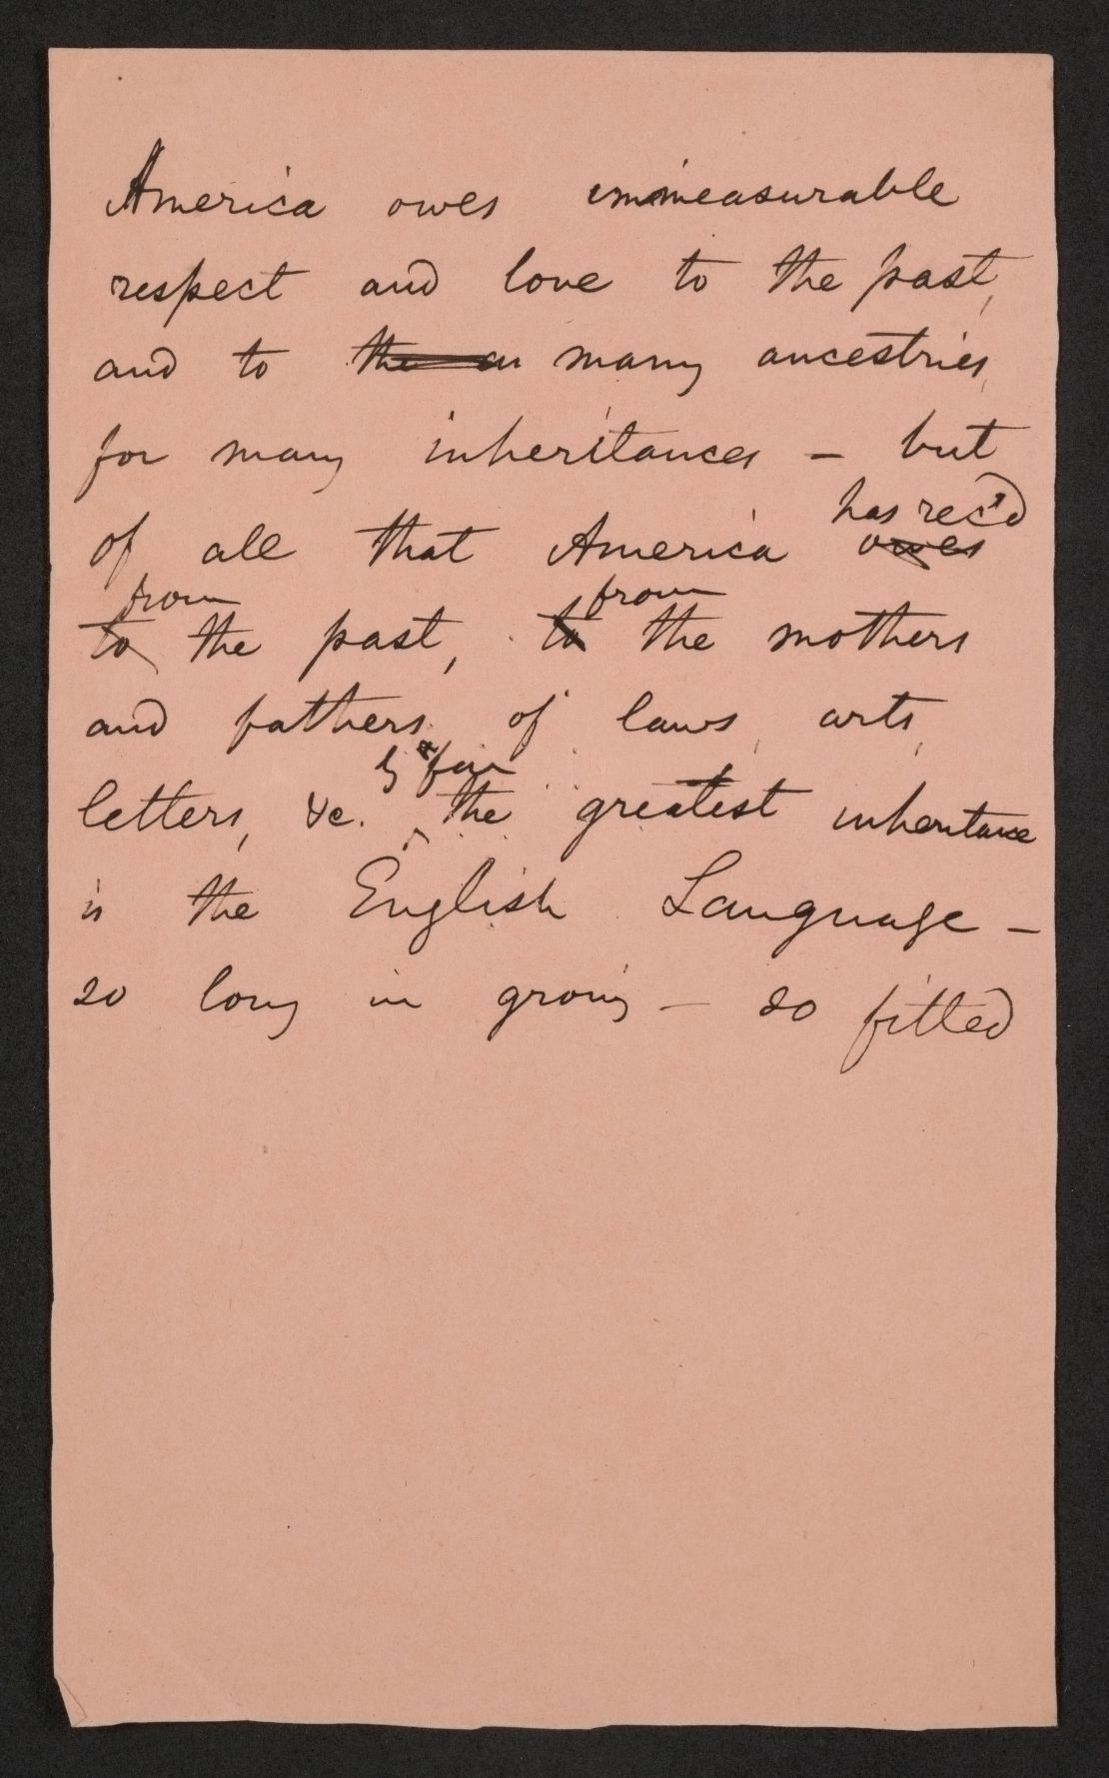 America owes immeasurable
respect and love to the past,
and to the an many ancestries,
for many inheritances – but
has rec'd
of all that America owes
from from
to the past, to the mothers
and fathers of laws, arts,
by far
letters, &c. the greatest inheritance
is the English Language –
so long in growing – so fitted